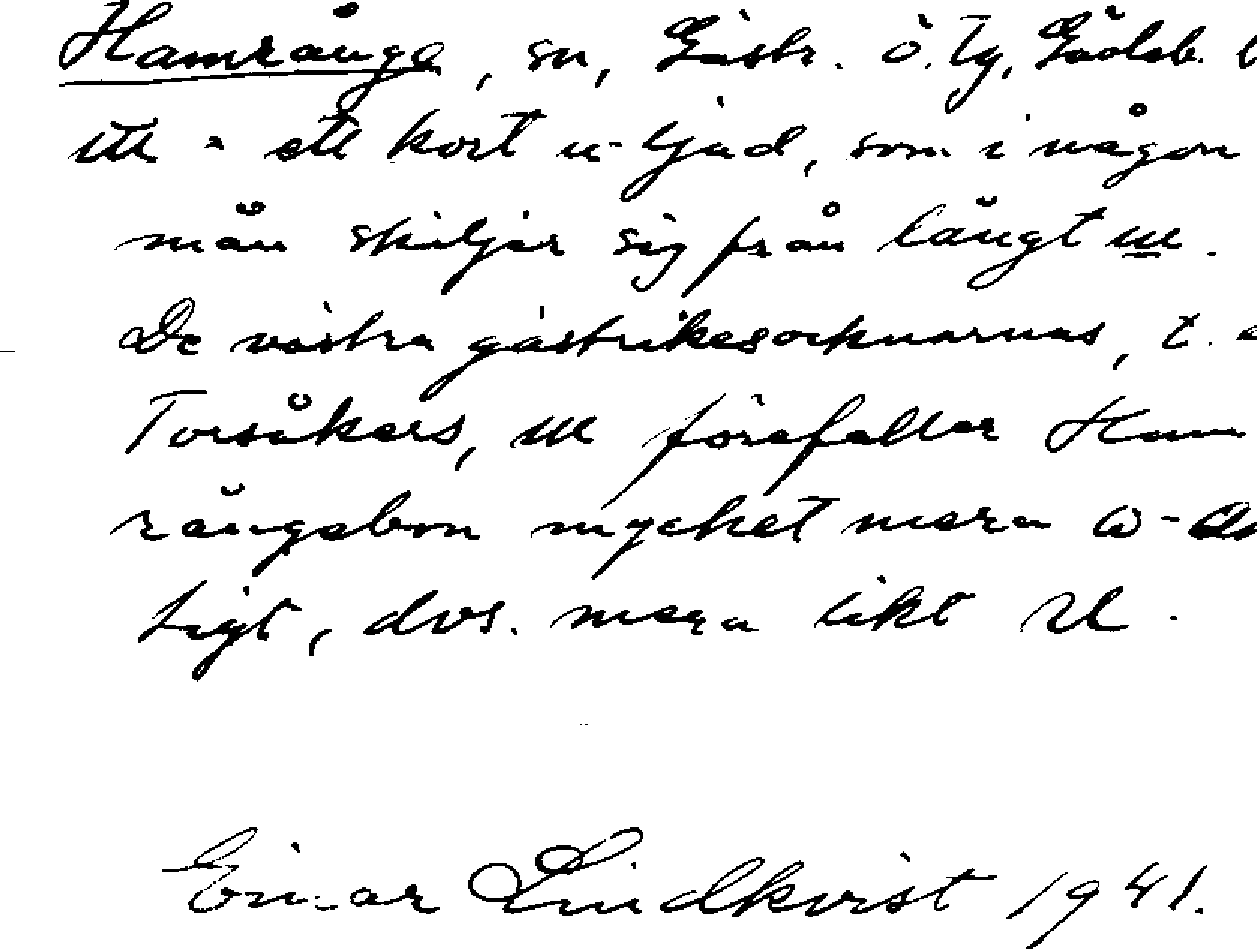 Hamrånge, sn, Gästr. ö. tg, Gävleb.
ett kort u-ljud, som i någon
mån skiljer sig från långt u.
De västra gästrikesocknarnas, t.
Torsåkers, förefaller Ham
rångebon mycket mera ω-
tigt, dvs. mera likt
Einar Lindkvist 1941.